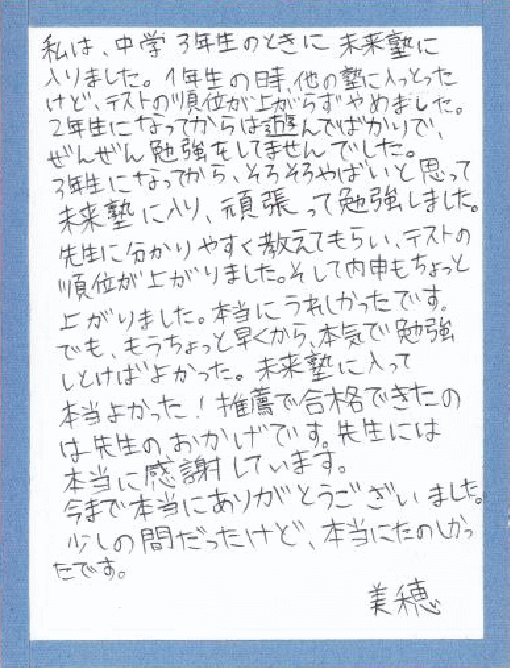 私は、中学3年生のときに未来塾に
入りました。1年生の時、他の塾に入っとった
けど、テストの順位が上がらずやめました。
2年生になってからは遊んでばかりで、
ぜんぜん勉強をしてませんでした。
3年生になってから、そろそろやばいと思って
未来塾に入り、頑張って勉強しました。
先生に分かりやすく教えてもらい、テストの
順位が上がりました。そして内申もちょっと
上がりました。本当にうれしかったです。
でも、もうちょっと早くから、本気で勉強
しとけばよかった。未来塾に入って
本当よかった!推薦で合格できたの
は先生のおかげです。先生には
本当に感謝しています。
今まで本当にありがとうございました。
少しの間だったけど、本当にたのしかっ
たです。
美穂